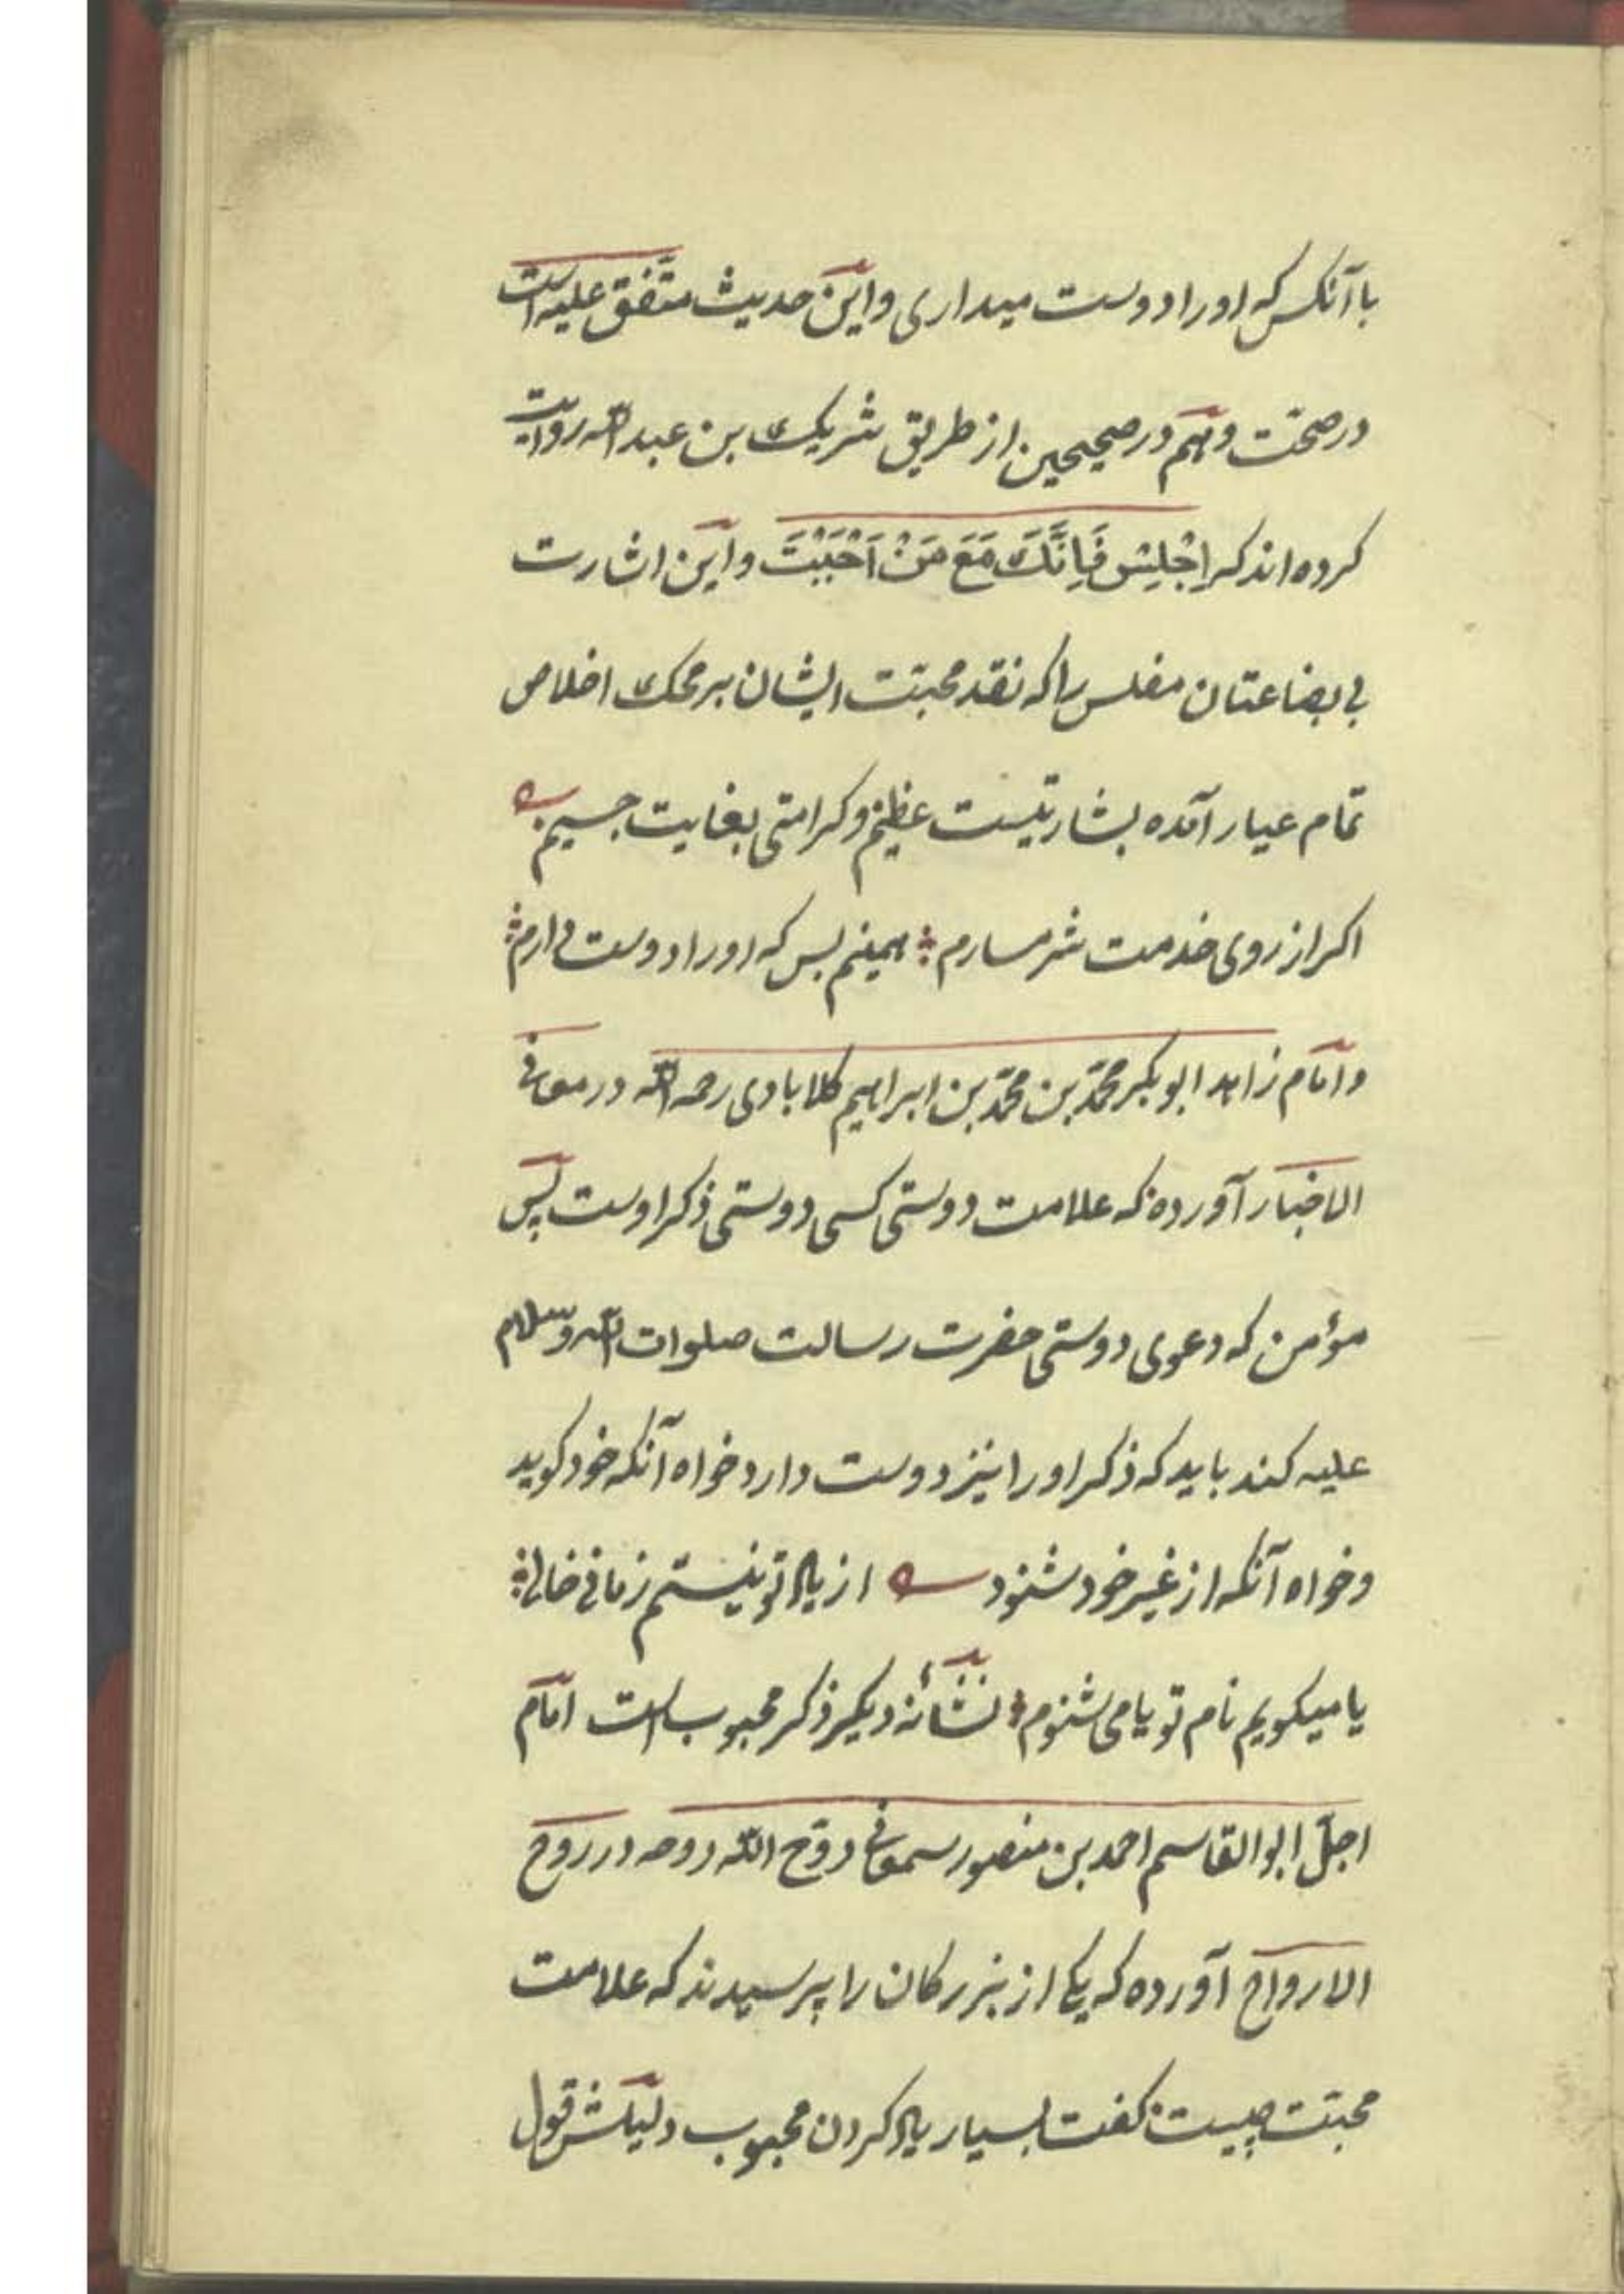 با آنکس که اورا دوست میداری و این حدیث متّفق علیه است
در صحّت و هم در صحیحین از طریق شریک بن عبد الله روایت
کرده اند که اِجْلِسْ فَاِنَّکَ مَعَ مَنْ اَحْبَبْتَ و این اشارت
بی بضاعتان مفلس را که نقد محبّت ایشان بر محک اخلاص
تمام عیار آمده بشارتیست عظیم و کرامتی بغایت جسیم
اکر از روی خدمت شرمسارم ؞ همینم بس که اورا دوست دارم ؞
و امام زاهد ابوبکر محمّد بن محمّد بن ابراهیم کلابادی رحمه الله در معانی
الاخبار آورده که علامت دوستی کسی دوستی ذکر اوست پس
مؤمن که دعوی دوستی حضرت رسالت صلوات الله و سلام
علیه کند باید که ذکر اورا نیز دوست دارد خواه آنکه خود کوید
و خواه آنکه از غیر خود شنود از یاد تو نیستم زمانی خالی ؞
یا میکویم نام تو یا می شنوم ؞ نشانهٔ دیکر ذکر محبوب است امام
اجلّ ابو القاسم احمد بن منصور سمعانی روّح الله روحه در روح
الارواح آورده که یکی از بزرکان را پرسیدند که علامت
محبّت چیست کفت بسیار یاد کردن محبوب دلیلش قول